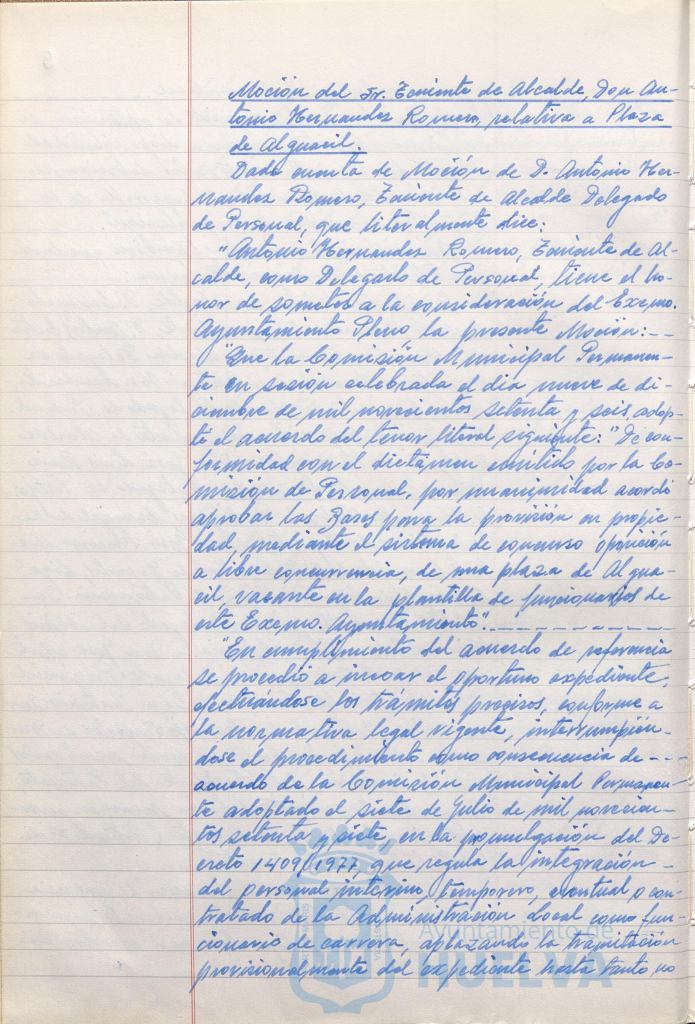 Moción del Sr. Teniente de Alcalde, Don An-
tonio Hernandez Romero, relativa a Plaza
de Alguacil.
Dada cuenta de Moción de D. Antonio Her-
nandez Romero, Teniente de Alcalde Delegado
de Personal, que literalmente dice:
"Antonio Hernandez Romero, Teniente de Al-
calde, como Delegado de Personal, tiene el ho-
nor de someter a la consideración del Excmo.
Ayuntamiento Pleno la presente Moción:--
"Que la Comisión Municipal Permanen-
te en sesión celebrada el dia nueve de di-
ciembre de mil novecientos setenta y seis, adop-
tó el acuerdo del tenor literal siguiente: "De con-
formidad con el dictámen emitido por la Co-
misión de Personal, por unanimidad acordó
aprobar las Bases para la provisión en propie-
dad, mediante el sistema de concurso oposición
a libre concurrencia, de una plaza de Algua-
cil, vacante en la plantilla de funcionarios de
este Excmo. Ayuntamiento".----------
"En cumplimiento del acuerdo de referencia
se procedió a incoar el oportuno expediente,
efectuándose los trámites precisos, conforme a
la normativa legal vigente, interrumpién-
dose el procedimiento como consecuencia de---
acuerdo de la Comisión Municipal Permanen-
te adoptado el siete de Julio de mil novecien-
tos setenta y siete, en la promulgación del De-
creto 1409/1977, que regula la integración-
del personal interino, temporero, eventual o con-
tratado de la Administración Local como fun-
cionario de carrera, aplazando la tramitación
provisionalmente del expediente hasta tanto no
Ayuntamiento de
HUELVA